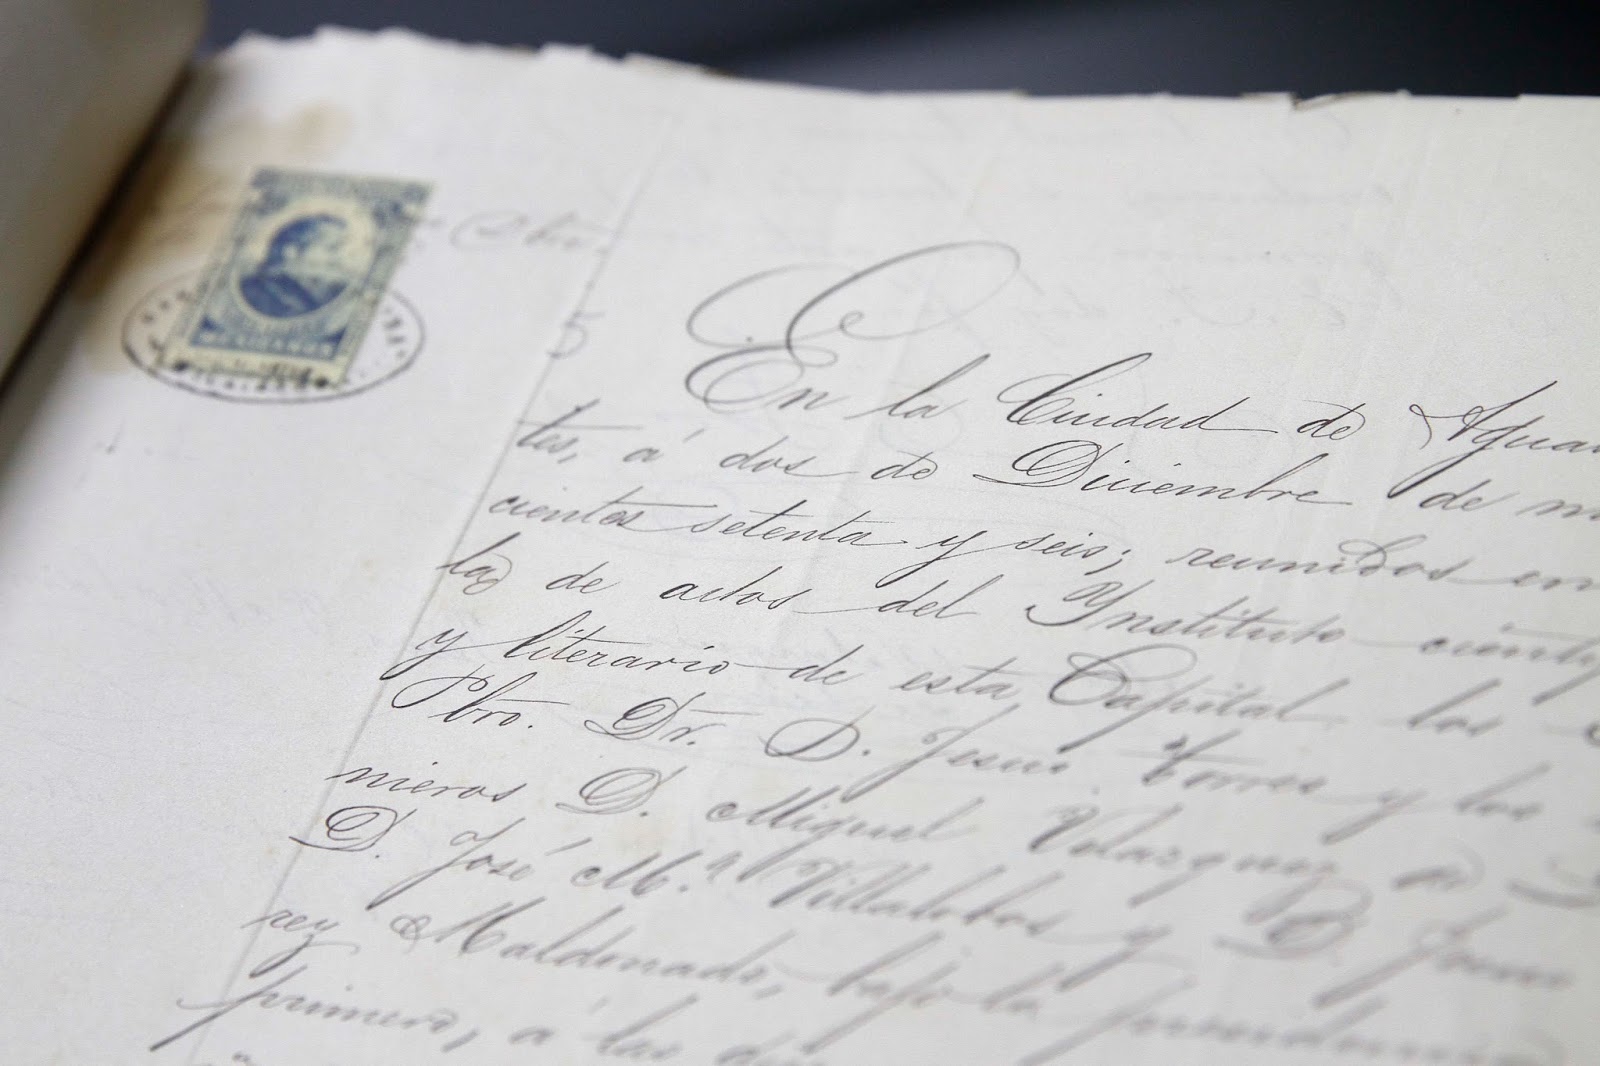 MEXICANOS
En la Ciudad de Agua
tes, á dos de Diciembre de m
cientos setenta y seis; reunidos en
las de actos del Ynstituto cientif
y literario de esta Capital los
Pbro. Dr. D. Jesus Torres y los
nieros D. Miguel Velazquez
D. José Ma. Villalobos y D. Juan
rey Maldonado, bajo la presidencia
primero, á las